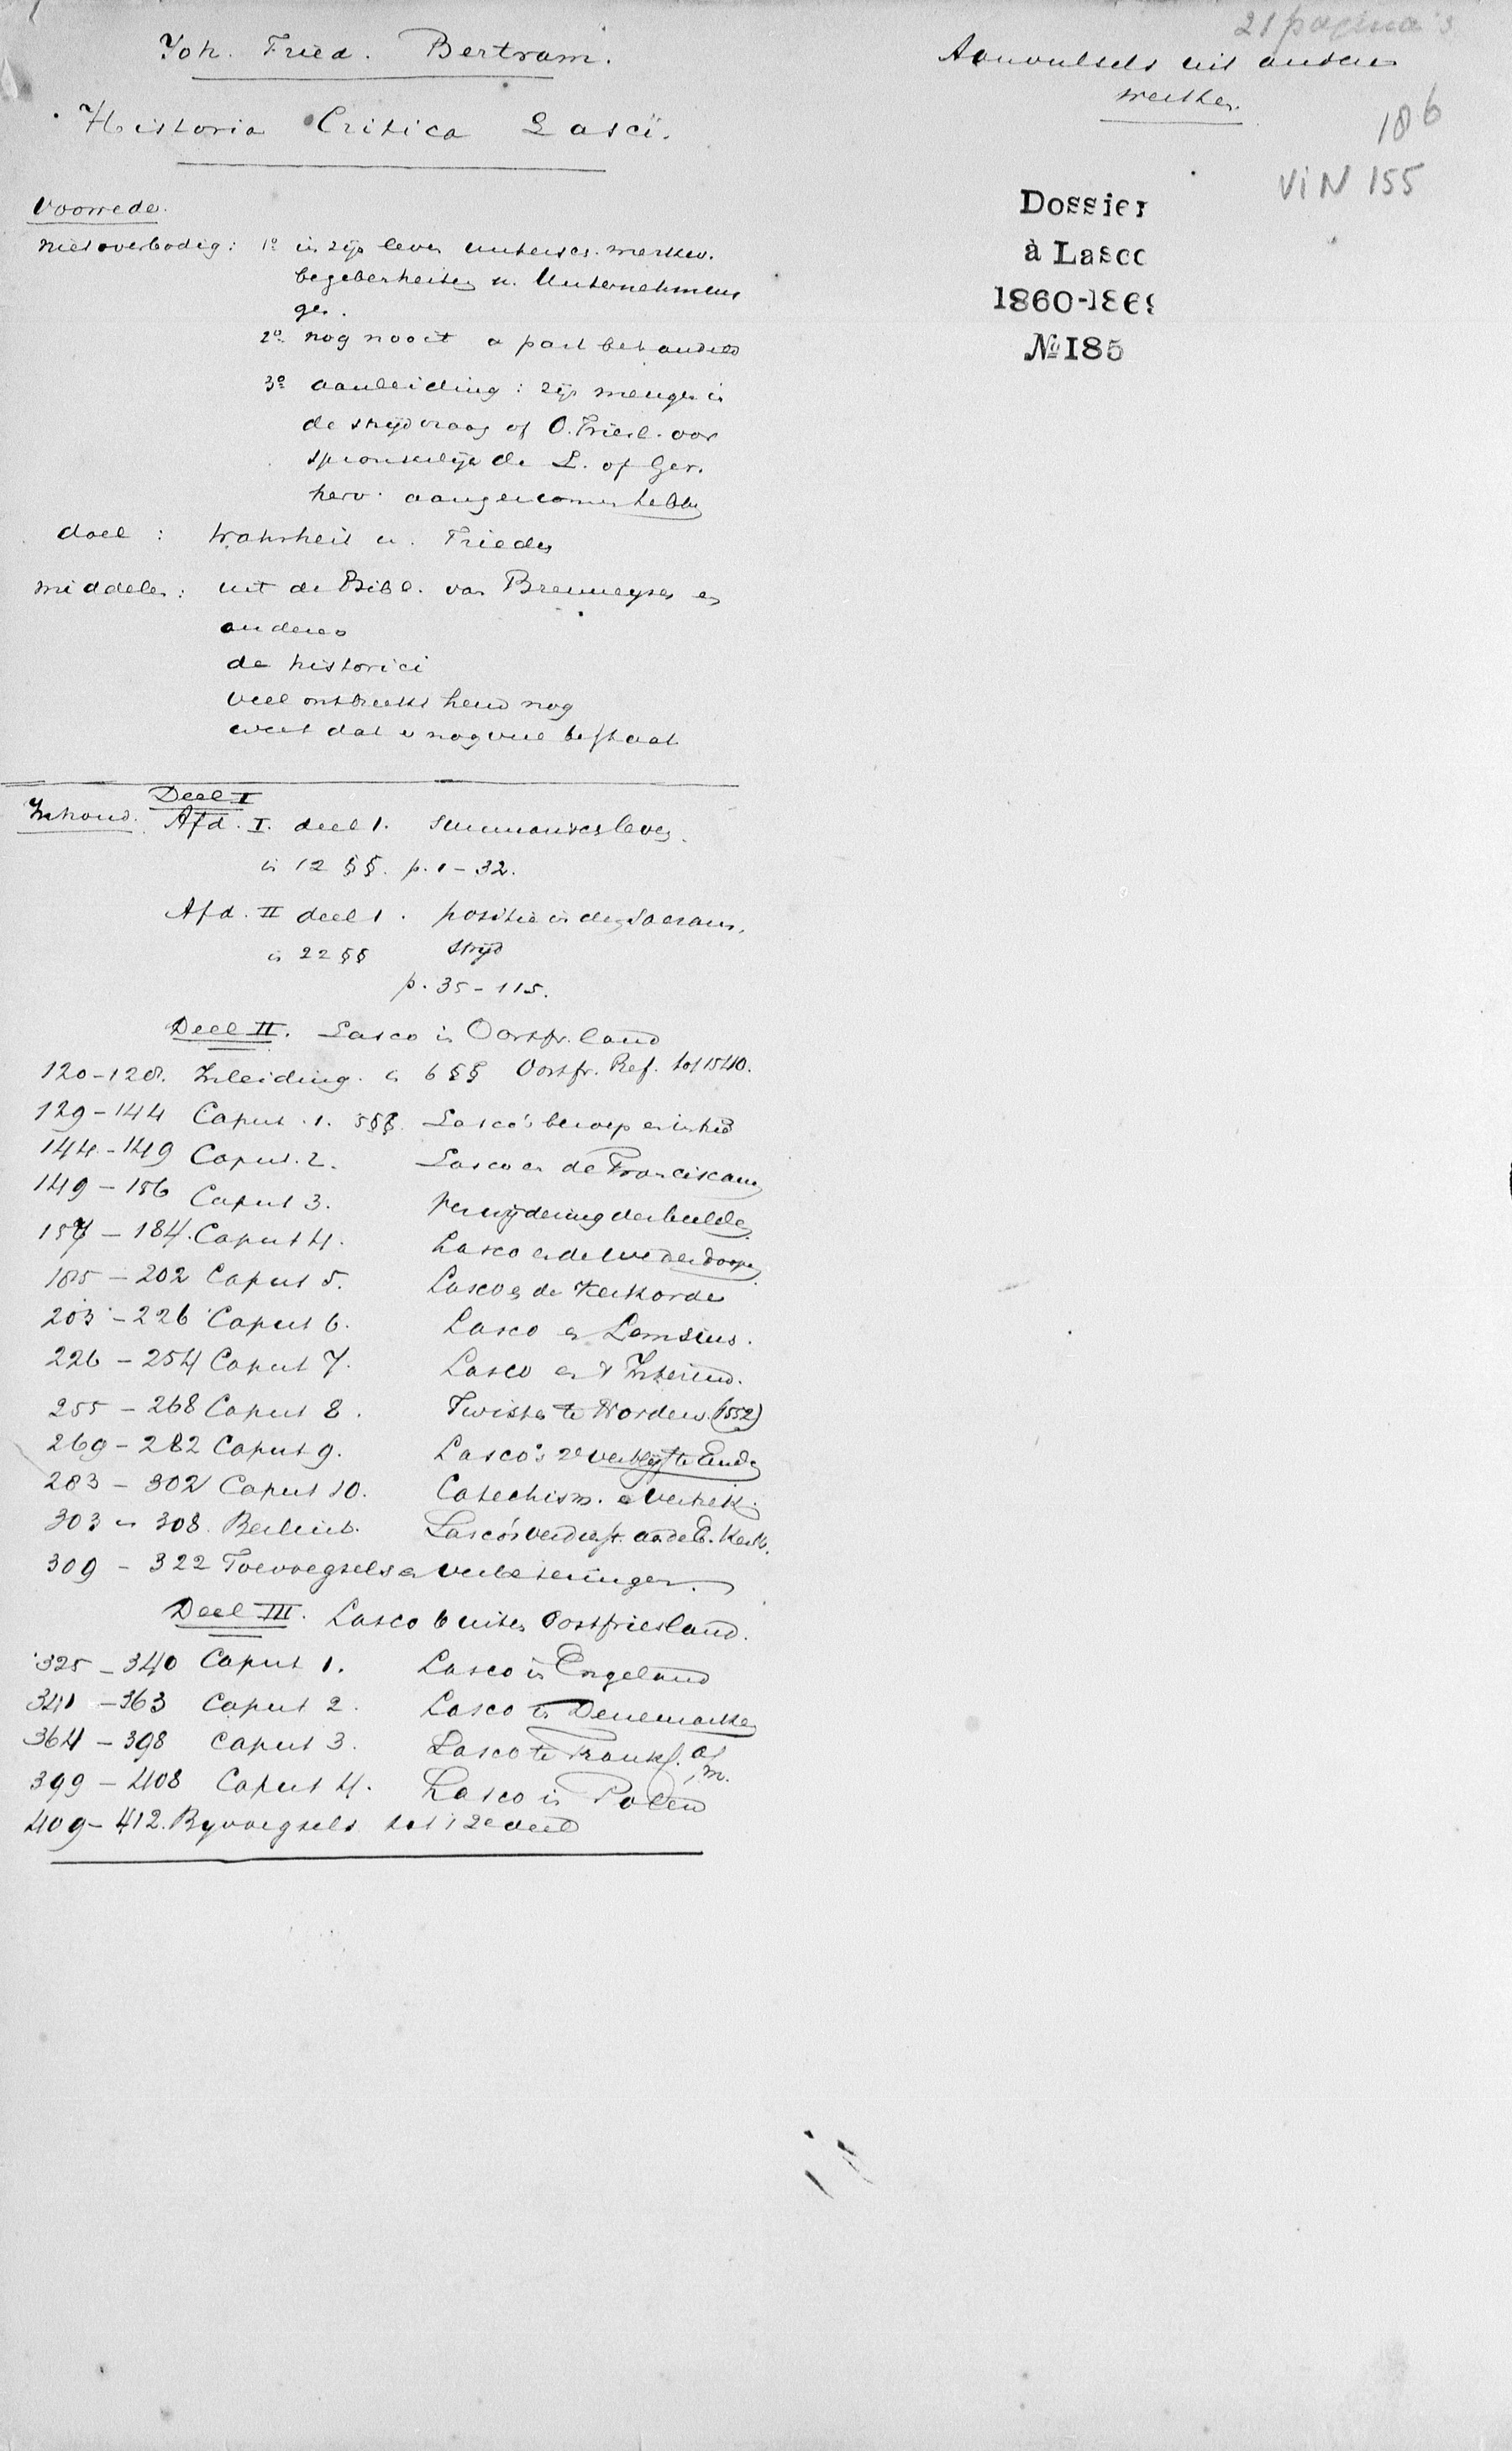 Joh. Fried. Bertram.
Historia Critica Lascï.
Voorrede.
niet overbodig: 1º in zijn leven unterscs. merkw.
begebenheiten u. Unternehmun
gen.
2º nog nooit a part behandeld
3º aanleiding: zijn mengen in
de strijdvraag of O. Friesl. oor
spronkelijk de L. of Ger.
herv. aangenomen hebben
doel: Wahrheit u. Frieden
middelen: uit de Bibl. van Brenneysen en
anderen
de historici
veel ontbreekt hem nog
weet dat er nog veel bestaat
Deel I
Inhoud. Afd. I. deel 1. summarisches leven.
in 12 §§. p. 1-32.
Afd. II deel 1. positie in den Sacram.
in 22 §§ strijd
p. 35-115.
Deel II. Lasco in Oostfr. land
120-128. Inleiding. in 6 §§ Oostfr. Ref. tot 1540.
129-144 Caput. 1. 5 §§. Lasco's beroep en
144-149 Caput. 2. Lasco en de Franciscanen
149-156 Caput 3. Verwijdering der beelden
157-184. Caput 4. Lasco en de wederdoopers
185-202 Caput 5. Lasco en de Kerkorde
203-226 Caput 6. Lasco en Lemsius.
226-254 Caput 7. Lasco en 't Interim.
255-268 Caput 8. Twisten te Norden (1552)
269-282 Caput 9. Lasco's 2e verblijf te Emden
283-302 Caput 10. Catechism. en vertrek.
303-308. Besluit. Lasco's verdienst. aan de E. Kerk.
309-322 Toevoegsels en verbeteringen.
Deel III. Lasco buiten Oostfriesland.
325-340 Caput 1. Lasco in Engeland
341-363 Caput 2. Lasco in Denemarken
364-398 Caput 3. Lasco te Frankf. a/m.
399-408 Caput 4. Lasco in Polen
409-412. Byvoegsels tot 't 2e deel
21 pagina's
Aanvulsels uit andere
werken.
186
ViN 155
Dossier
à Lasco
1860-1869
No 185